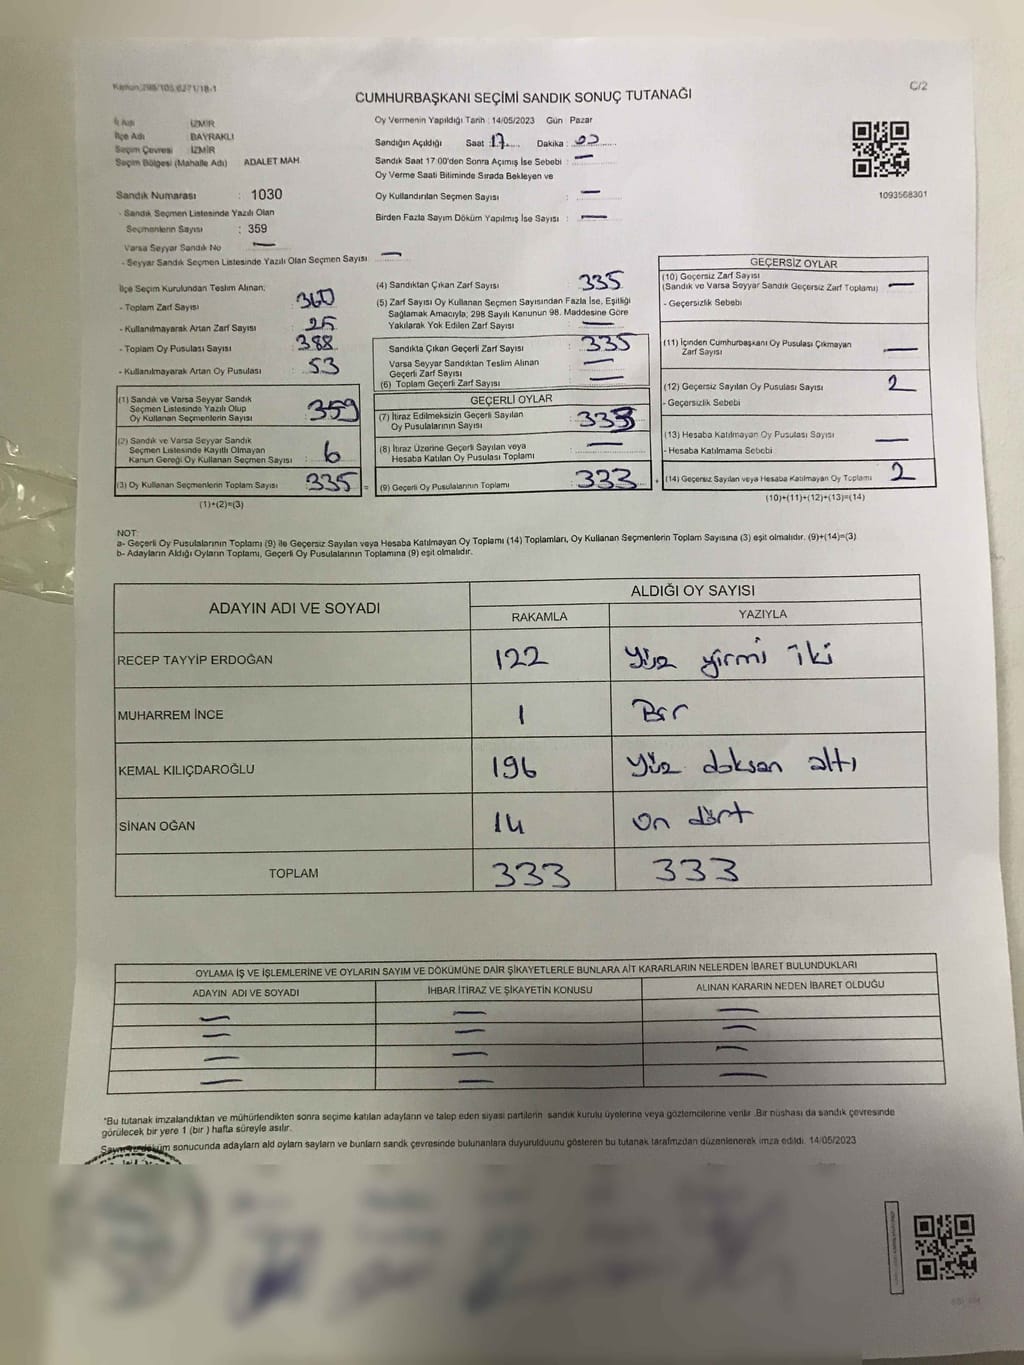 Kanun:298/105,6271/18-1
C/2
CUMHURBAŞKANI SEÇİMİ SANDIK SONUÇ TUTANAĞI
İl Adı İZMİR
İlçe Adı BAYRAKLI
Seçim Çevresi İZMİR
Seçim Bölgesi (Mahalle Adı) ADALET MAH.
Sandık Numarası : 1030
- Sandık Seçmen Listesinde Yazılı Olan
Seçmenlerin Sayısı : 359
Varsa Seyyar Sandık No —
- Seyyar Sandık Seçmen Listesinde Yazılı Olan Seçmen Sayısı —
Oy Vermenin Yapıldığı Tarih : 14/05/2023 Gün : Pazar
Sandığın Açıldığı Saat : 17 Dakika : 00
Sandık Saat 17:00'den Sonra Açımış İse Sebebi : —
Oy Verme Saati Bitiminde Sırada Bekleyen ve
Oy Kullandırılan Seçmen Sayısı : —
Birden Fazla Sayım Döküm Yapılmış İse Sayısı : —
1093568301
İlçe Seçim Kurulundan Teslim Alınan;
- Toplam Zarf Sayısı : 360
- Kullanılmayarak Artan Zarf Sayısı : 25
- Toplam Oy Pusulası Sayısı : 388
- Kullanılmayarak Artan Oy Pusulası : 53
(1) Sandık ve Varsa Seyyar Sandık
Seçmen Listesinde Yazılı Olup
Oy Kullanan Seçmenlerin Sayısı : 359
(2) Sandık ve Varsa Seyyar Sandık
Seçmen Listesinde Kayıtlı Olmayan
Kanun Gereği Oy Kullanan Seçmen Sayısı : 6
(3) Oy Kullanan Seçmenlerin Toplam Sayısı : 335 =
(1)+(2)=(3)
(4) Sandıktan Çıkan Zarf Sayısı : 335
(5) Zarf Sayısı Oy Kullanan Seçmen Sayısından Fazla İse, Eşitliği
Sağlamak Amacıyla; 298 Sayılı Kanunun 98. Maddesine Göre
Yakılarak Yok Edilen Zarf Sayısı : —
Sandıkta Çıkan Geçerli Zarf Sayısı : 335
Varsa Seyyar Sandıktan Teslim Alınan
Geçerli Zarf Sayısı : —
(6) Toplam Geçerli Zarf Sayısı : —
GEÇERLİ OYLAR
(7) İtiraz Edilmeksizin Geçerli Sayılan
Oy Pusulalarının Sayısı : 333
(8) İtiraz Üzerine Geçerli Sayılan veya
Hesaba Katılan Oy Pusulası Toplamı : —
(9) Geçerli Oy Pusulalarının Toplamı : 333 +
GEÇERSİZ OYLAR
(10) Geçersiz Zarf Sayısı
(Sandık ve Varsa Seyyar Sandık Geçersiz Zarf Toplamı) —
- Geçersizlik Sebebi
(11) İçinden Cumhurbaşkanı Oy Pusulası Çıkmayan
Zarf Sayısı —
(12) Geçersiz Sayılan Oy Pusulası Sayısı 2
- Geçersizlik Sebebi
(13) Hesaba Katılmayan Oy Pusulası Sayısı —
- Hesaba Katılmama Sebebi
(14) Geçersiz Sayılan veya Hesaba Katılmayan Oy Toplamı 2
(10)+(11)+(12)+(13)=(14)
NOT:
a- Geçerli Oy Pusulalarının Toplamı (9) ile Geçersiz Sayılan veya Hesaba Katılmayan Oy Toplamı (14) Toplamları, Oy Kullanan Seçmenlerin Toplam Sayısına (3) eşit olmalıdır. (9)+(14)=(3)
b- Adayların Aldığı Oyların Toplamı, Geçerli Oy Pusulalarının Toplamına (9) eşit olmalıdır.
ADAYIN ADI VE SOYADI ALDIĞI OY SAYISI
RAKAMLA YAZIYLA
RECEP TAYYİP ERDOĞAN 122 Yüz yirmi iki
MUHARREM İNCE 1 Bir
KEMAL KILIÇDAROĞLU 196 Yüz doksan altı
SİNAN OĞAN 14 On dört
TOPLAM 333 333
OYLAMA İŞ VE İŞLEMLERİNE VE OYLARIN SAYIM VE DÖKÜMÜNE DAİR ŞİKAYETLERLE BUNLARA AİT KARARLARIN NELERDEN İBARET BULUNDUKLARI
ADAYIN ADI VE SOYADI İHBAR İTİRAZ VE ŞİKAYETİN KONUSU ALINAN KARARIN NEDEN İBARET OLDUĞU
— — —
— — —
— — —
— — —
*Bu tutanak imzalandıktan ve mühürlendikten sonra seçime katılan adayların ve talep eden siyasi partilerin sandık kurulu üyelerine veya gözlemcilerine verilir .Bir nüshası da sandık çevresinde
görülecek bir yere 1 (bir ) hafta süreyle asılır.
Sayım döküm sonucunda adayların ald oyların sayların ve bunların sandk çevresinde bulunanlara duyurulduunu gösteren bu tutanak tarafmzdan düzenlenerek imza edildi. 14/05/2023